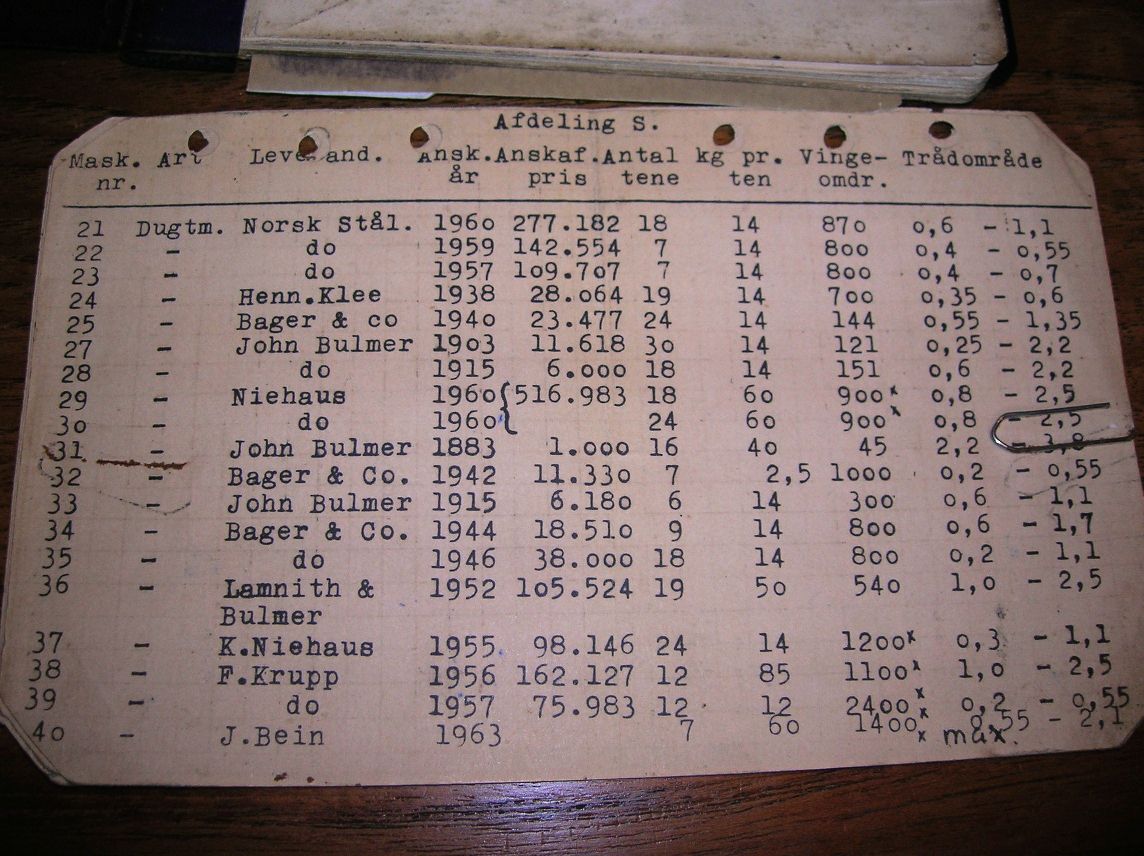 Afdeling S.
Mask. Art Leverand. Ansk. Anskaf. Antal kg pr. Vinge- Trådområde
nr. år pris tene ten omdr.
21 Dugtm. Norsk Stål. 1960 277.182 18 14 870 0,6 - 1,1
22 - do 1959 142.554 7 14 800 0,4 - 0,55
23 - do 1957 109.707 7 14 800 0,4 - 0,7
24 - Henn.Klee 1938 28.064 19 14 700 0,35 - 0,6
25 - Bager & co 1940 23.477 24 14 144 0,55 - 1,35
27 - John Bulmer 1903 11.618 30 14 121 0,25 - 2,2
28 - do 1915 6.000 18 14 151 0,6 - 2,2
29 - Niehaus 1960 { 516.983 18 60 900x 0,8 - 2,5
30 - do 1960 24 60 900x 0,8 - 2,5
31 - John Bulmer 1883 1.000 16 40 45 2,2 - 3,8
32 - Bager & Co. 1942 11.330 7 2,5 1000 0,2 - 0,55
33 - John Bulmer 1915 6.180 6 14 300 0,6 - 1,1
34 - Bager & Co. 1944 18.510 9 14 800 0,6 - 1,7
35 - do 1946 38.000 18 14 800 0,2 - 1,1
36 - Lamnith & 1952 105.524 19 50 540 1,0 - 2,5
Bulmer
37 - K.Niehaus 1955 98.146 24 14 1200x 0,3 - 1,1
38 - F.Krupp 1956 162.127 12 85 1100x 1,0 - 2,5
39 - do 1957 75.983 12 12 2400x 0,2 - 0,55
40 - J.Bein 1963 7 60 1400x 0,55 - 2,1
x max.